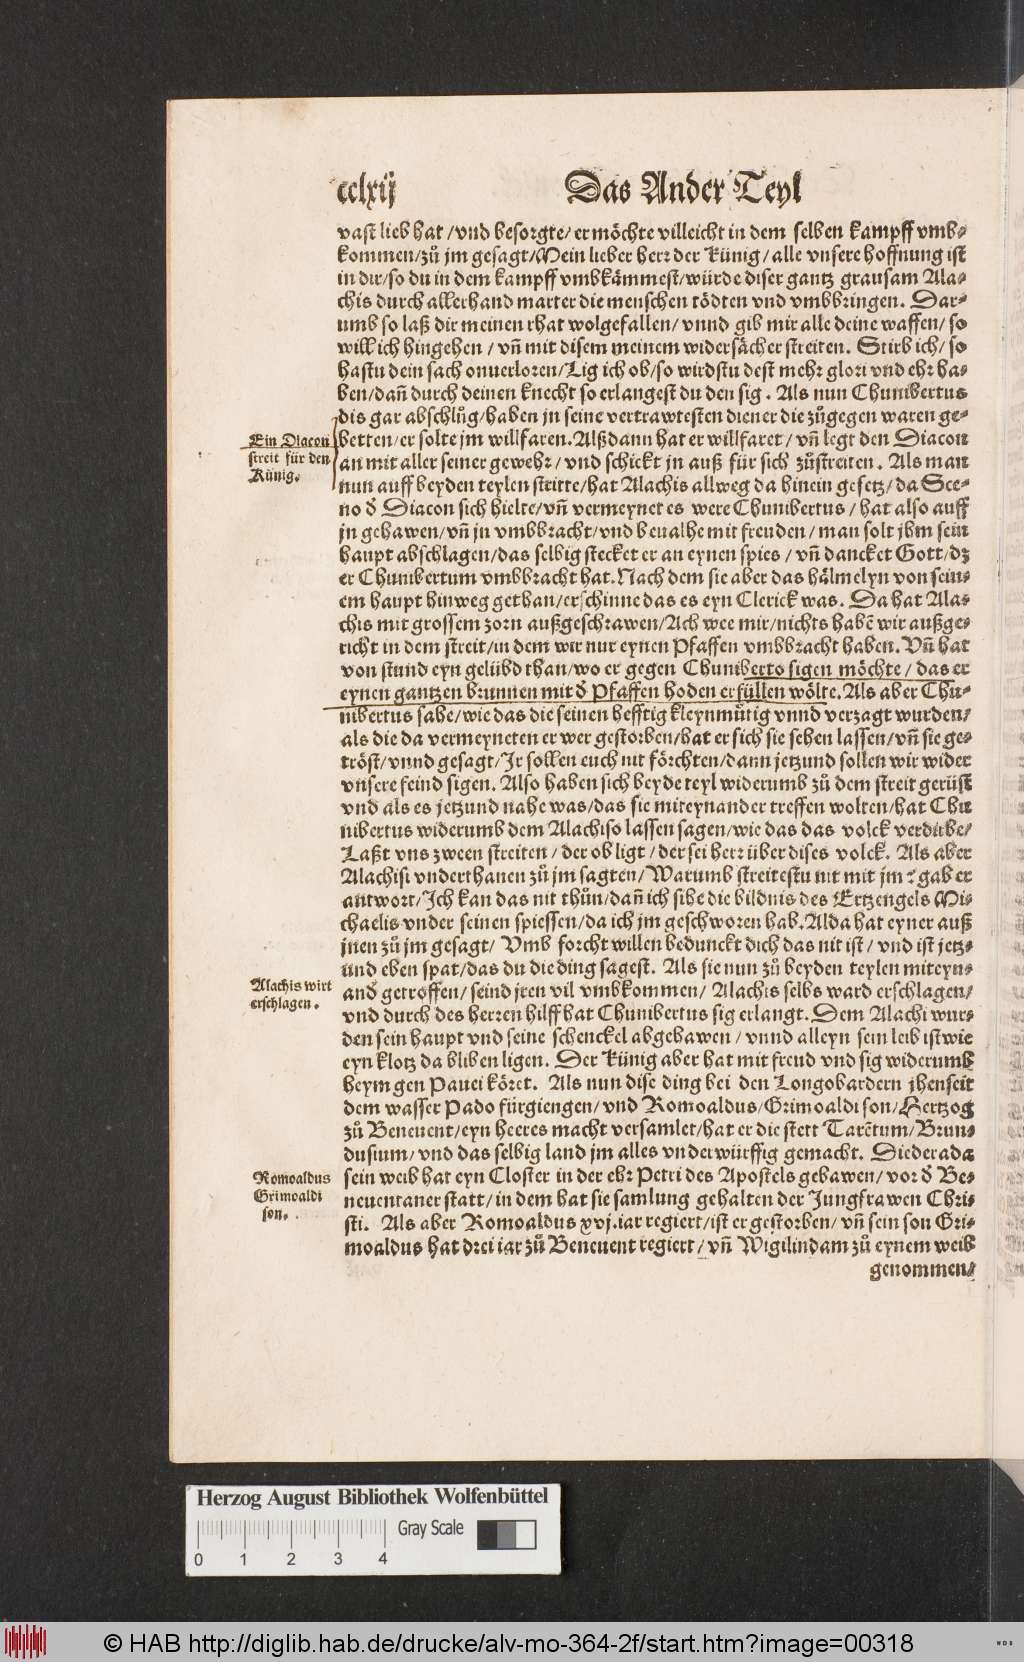 cclxij Das Ander Teyl
vast lieb hat / vnd besorgte / er möchte villeicht in dem selben kampff vmb⸗
kommen / zů jm gesagt / Mein lieber herr der Künig / alle vnsere hoffnung ist
in dir / so du in dem kampff vmbkämmest / würde diser gantz grausam Ala⸗
chis durch allerhand marter die menschen tödten vnd vmbbringen. Dar⸗
umb so laß dir meinen rhat wolgefallen / vnnd gib mir alle deine waffen / so
will ich hingehen / vñ mit disem meinem widersächer streiten. Stirb ich / so
hastu dein sach onuerloren / Lig ich ob / so wirdstu dest mehr glori vnd ehr ha⸗
ben / dañ durch deinen knecht so erlangest du den sig. Als nun Chunibertus
dis gar abschlůg / haben jn seine vertrawtesten diener die zůgegen waren ge⸗
Ein Diacon
streit für den
Künig.
betten / er solte jm willfaren. Alßdann hat er willfaret / vñ legt den Diacon
an mit aller seiner gewehr / vnd schickt jn auß für sich zůstreiten. Als man
nun auff beyden teylen stritte / hat Alachis allweg da hinein gesetz / da Sce⸗
no d̕ Diacon sich hielte / vñ vermeynet es were Chunibertus / hat also auff
jn gehawen / vñ jn vmbbracht / vnd beualhe mit freuden / man solt jhm sein
haupt abschlagen / das selbig stecket er an eynen spies / vñ dancket Gott / dz
er Chunibertum vmbbracht hat. Nach dem sie aber das hälmelyn von sein⸗
em haupt hinweg gethan / erschinne das es eyn Clerick was. Da hat Ala⸗
chis mit grossem zorn außgeschrawen / Ach wee mir / nichts habẽ wir außge⸗
richt in dem streit / in dem wir nur eynen Pfaffen vmbbracht haben. Vñ hat
von stund eyn gelübd than / wo er gegen Chuniberto sigen möchte / das er
eynen gantzen brunnen mit d̕ Pfaffen hoden erfüllen wölte. Als aber Chu⸗
nibertus sahe / wie das die seinen hefftig kleynmůtig vnnd verzagt wurden /
als die da vermeyneten er wer gestorben / hat er sich sie sehen lassen / vñ sie ge⸗
tröst / vnnd gesagt / Ir sollen euch nit förchten / dann jetzund sollen wir wider
vnsere feind sigen. Also haben sich beyde teyl widerumb zů dem streit gerüst
vnd als es jetzund nahe was / das sie miteynander treffen wolten / hat Chu
nibertus widerumb dem Alachiso lassen sagen / wie das das volck verdürbe /
Laßt vns zween streiten / der ob ligt / der sei herr über dises volck. Als aber
Alachisi vnderthanen zů jm sagten / Warumb streitestu nit mit jm? gab er
antwort / Ich kan das nit thůn / dañ ich sihe die bildnis des Ertzengels Mi⸗
chaelis vnder seinen spiessen / da ich jm geschworen hab. Alda hat eyner auß
jnen zů jm gesagt / Vmb forcht willen bedunckt dich das nit ist / vnd ist jetz⸗
und eben spat / das du die ding sagest. Als sie nun zů beyden teylen miteyn⸗
Alachis wirt
erschlagen.
and̕ getroffen / seind jren vil vmbkommen / Alachis selbs ward erschlagen /
vnd durch des herren hilff hat Chunibertus sig erlangt. Dem Alachi wur⸗
den sein haupt vnd seine schenckel abgehawen / vnnd alleyn sein leib ist wie
eyn klotz da bliben ligen. Der Künig aber hat mit freud vnd sig widerumb
heym gen Pauei köret. Als nun dise ding bei den Longobardern jhenseit
dem wasser Pado fürgiengen / vnd Romoaldus / Grimoaldi son / Hertzog
zů Beneuent / eyn heeres macht versamlet / hat er die stett Tarẽtum / Brun⸗
dusium / vnd das selbig land jm alles vnderwürffig gemacht. Diederada
Romoaldus
Grimoaldi
son.
sein weib hat eyn Closter in der ehr Petri des Apostels gebawen / vor d̕ Be⸗
neuentaner statt / in dem hat sie samlung gehalten der Jungfrawen Chri⸗
sti. Als aber Romoaldus xvj. iar regiert / ist er gestorben / vñ sein son Gri⸗
moaldus hat drei iar zů Beneuent regiert / vñ Wigilindam zů eynem weib
genommen /
Herzog August Bibliothek Wolfenbüttel
Gray Scale
0 1 2 3 4
© HAB http://diglib.hab.de/drucke/alv-mo-364-2f/start.htm?image=00318